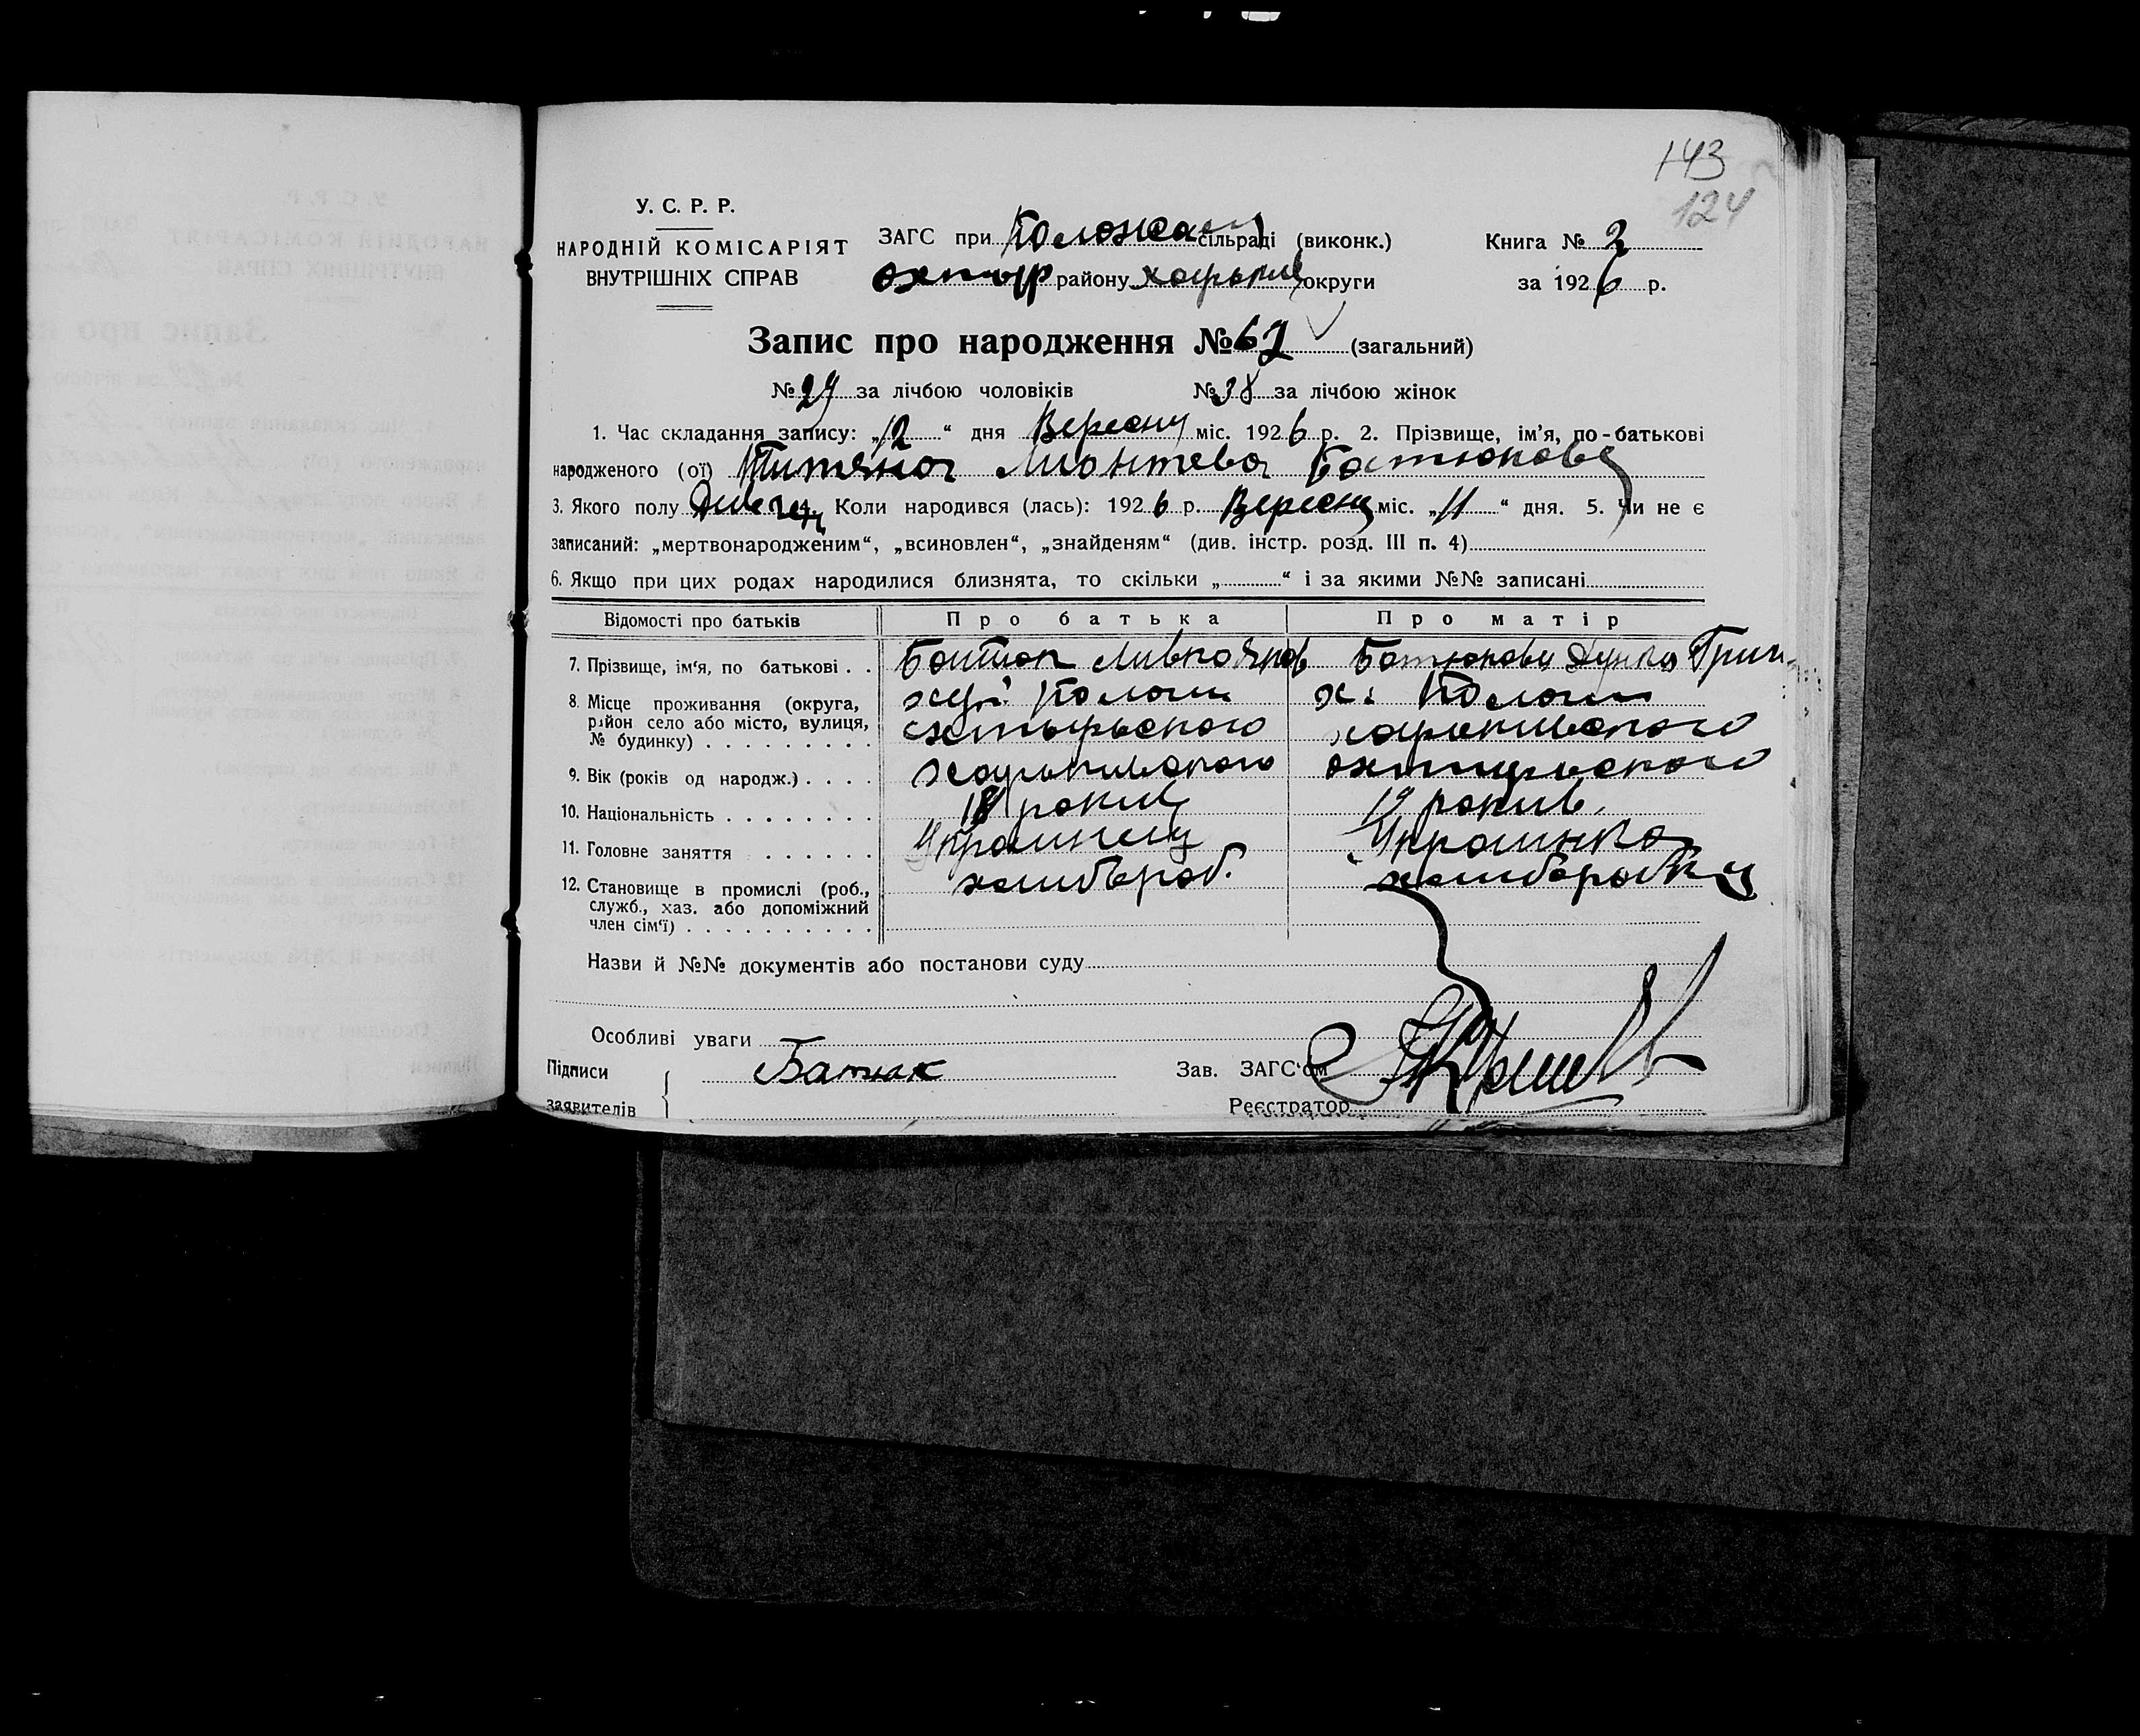 143
124
У. С. Р. Р.
НАРОДНІЙ КОМІСАРІЯТ
ВНУТРІШНІХ СПРАВ
ЗАГС при сільраді (виконк.)
Охтыр району Харькив округи
Книга № 2
за 1926 р.
Запис про народження № 67 (загальний)
№ 29 за лічбою чоловіків № 38 за лічбою жінок
1. Час складання запису: „12“ дня Вересня міс. 1926 р. 2. Прізвище, ім’я, по-батькові
народженого (ої) Батюкова
3. Якого полу 4. Коли народився (лась): 1926 р. Вересня міс. „11“ дня. 5. Чи не є
записаний: „мертвонародженим“, „всиновлен“, „знайденям“ (див. інстр. розд. III п. 4)
6. Якщо при цих родах народилися близнята, то скільки „ “ і за якими №№ записані
Відомості про батьків Про батька Про матір
7. Прізвище, ім‘я, по батькові . . Батюк Батюкова Грин
8. Місце проживання (округа,
район село або місто, вулиця,
№ будинку)
охтырьского харькивского
9. Вік (років од народж.) . . . . харькивского охтырьского
10. Національність 18 рокив 19 рокив
11. Головне заняття Украинец Украинка
12. Становище в промислі (роб., хлибороб. хлиборобка
служб., хаз. або допоміжний
член сім‘ї)
Назви й №№ документів або постанови суду
Особливі уваги
Підписи Батюк Зав. ЗАГС‘ом
заявителів Реєстратор